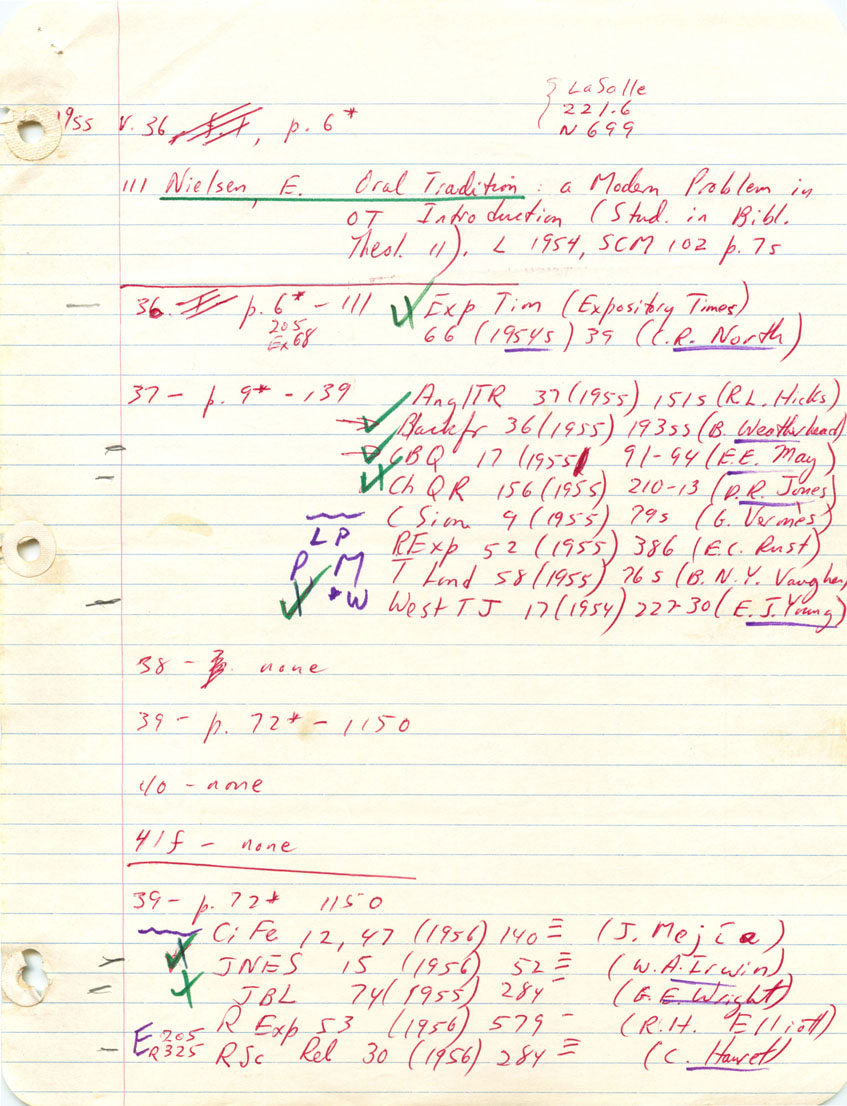 LaSalle
221.6
N 699
1955 V. 36, p. 6*
111 Nielsen, E. Oral Tradition: a Modern Problem in
OT Introduction (Stud. in Bibl.
Theol. 11). L 1954, SCM 102 p. 7s
36 p. 6* - 111 Exp Tim (Expository Times)
205
Ex68
66 (1954s) 39 (C.R. North)
37 - p. 9* - 139 AnglTR 37 (1955) 151s (R.L. Hicks)
36 (1955) 193ss (B. Weatherhead)
CBQ 17 (1955) 91-94 (E.E. May)
Ch QR 156 (1955) 210-13 (D.R. Jones)
C Sion 9 (1955) 79s (G. Vermès)
LP
RExp 52 (1955) 386 (E.C. Rust)
P, M
T Lond 58 (1955) 76s (B.N.Y. Vaughan)
*W
West TJ 17 (1954) 227-30 (E.J. Young)
38 - none
39 - p. 72* - 1150
40 - none
41f - none
39 - p. 72* 1150
Ci Fe 12, 47 (1956) 140 (J. Mejía)
JNES 15 (1956) 52 (W.A. Irwin)
JBL 74 (1955) 284 (G.E. Wright)
R Exp 53 (1956) 579 (R.H. Elliott)
E 205
R325
RSc Rel 30 (1956) 284 (C. Hauret)